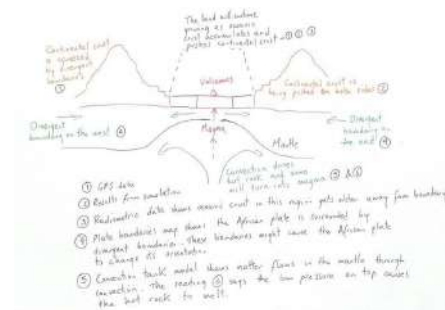 The land will continue
growing as oceanic
crust accumulates and
pushes continental crust
Continental crust
is squeezed
by divergent
boundaries
①
Volcanoes
Continental crust is
being pushed on both sides ②
Divergent
boundary on the west ④
Magma
Divergent
boundary on
the east ④
Mantle
Convection drives
hot rock and some
will turn into magma ⑤ & ⑥
① GPS data
② Results from simulation
③ Radiometric data shows oceanic crust in this region gets older away from boundary
④ Plate boundaries map shows the African plate is surrounded by
divergent boundaries. These boundaries might cause the African plate
to change its orientation
⑤ Convection tank model shows matter flows in the mantle through
convection. The reading ⑥ says the low pressure on top causes
the hot rock to melt.